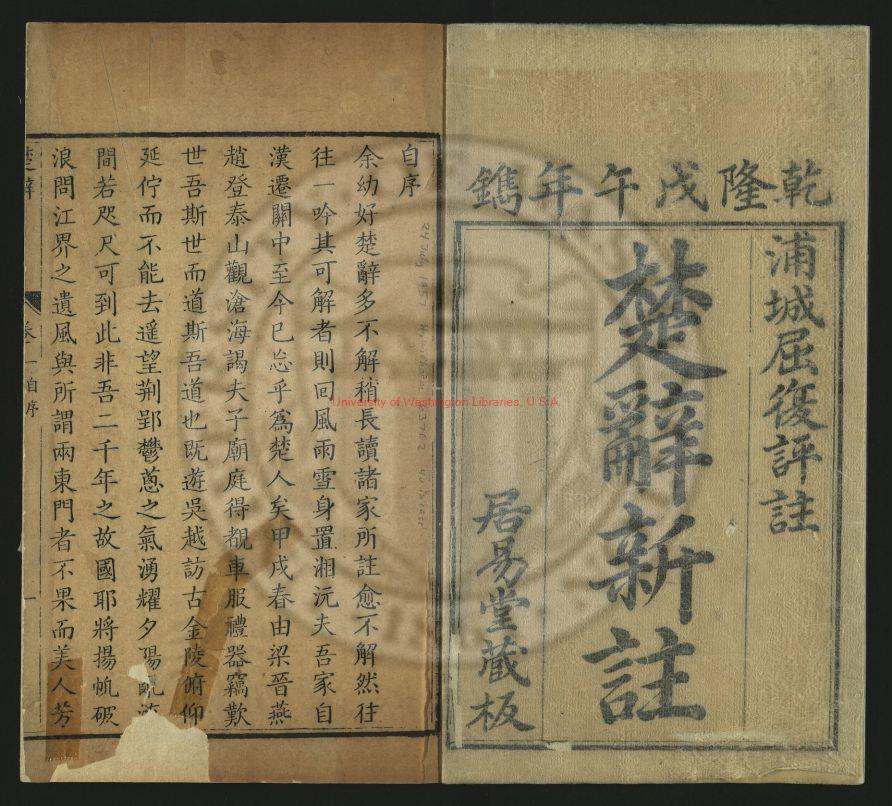 乾隆戊午年鐫
浦城屈復評註
楚辭新註
居易堂藏板
自序
余幼好楚辭多不解稍長讀諸家所註愈不解然往
往一吟其可解者則回風雨雪身置湘沅夫吾家自
漢遷關中至今已忘乎為楚人矣甲戌春由梁晉燕
趙登泰山觀滄海謁夫子廟庭得覩車服禮器竊歎
世吾斯世而道斯吾道也既遊吳越訪古金陵俯仰
延佇而不能去遥望荆郢鬱蔥之氣湧耀夕陽
間若咫尺可到此非吾二千年之故國耶將揚帆破
浪問江界之遺風與所謂兩東門者不果而美人芳
楚辭 卷一自序 一
University of Washington Libraries, U.S.A.